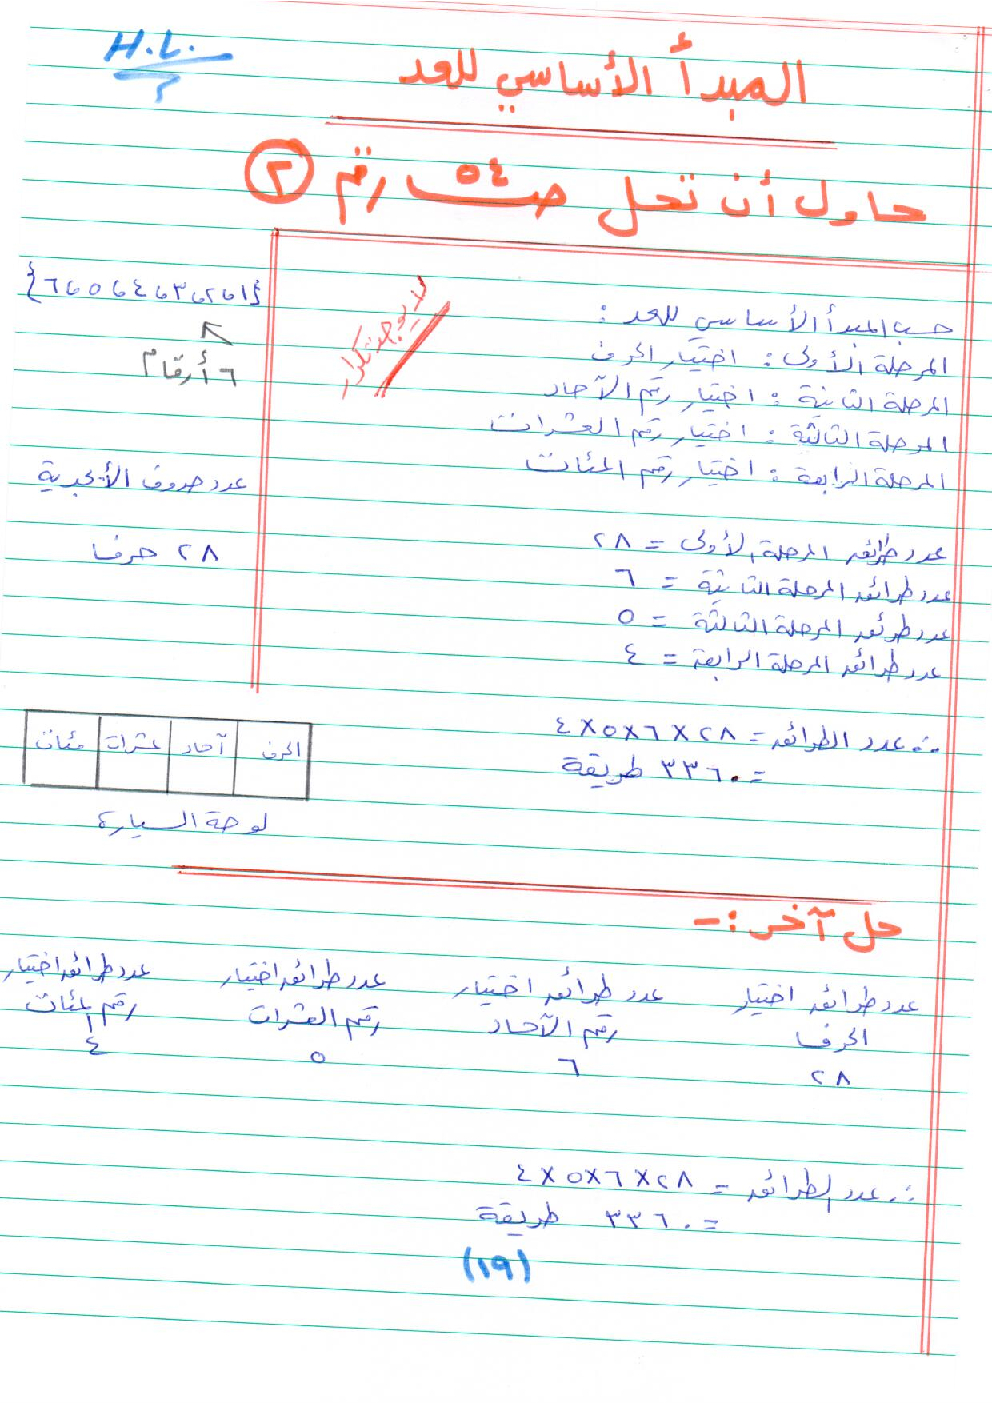 H.L.
المبدأ الأساسي للعد
حاول أن تحل صـ ٥٤ رقم (٢)
{٦،٥،٤،٣،٢،١}
٦ أرقام
لا يوجد تكرار
حسب المبدأ الأساسي للعد :
المرحلة الأولى : اختيار الحرف
المرحلة الثانية : اختيار رقم الآحاد
المرحلة الثالثة : اختيار رقم العشرات
المرحلة الرابعة : اختيار رقم المئات
عدد حروف الأبجدية
٢٨ حرفا
عدد طرائق المرحلة الأولى = ٢٨
عدد طرائق المرحلة الثانية = ٦
عدد طرائق المرحلة الثالثة = ٥
عدد طرائق المرحلة الرابعة = ٤
∴ عدد الطرائق = ٢٨ × ٦ × ٥ × ٤
= ٣٣٦٠ طريقة
الحرف آحاد عشرات مئات
لوحة السيارة
حل آخر :-
عدد طرائق اختيار عدد طرائق اختيار عدد طرائق اختيار عدد طرائق اختيار
الحرف رقم الآحاد رقم العشرات رقم المئات
٢٨ ٦ ٥ ٤
∴ عدد الطرائق = ٢٨ × ٦ × ٥ × ٤
= ٣٣٦٠ طريقة
(١٩)